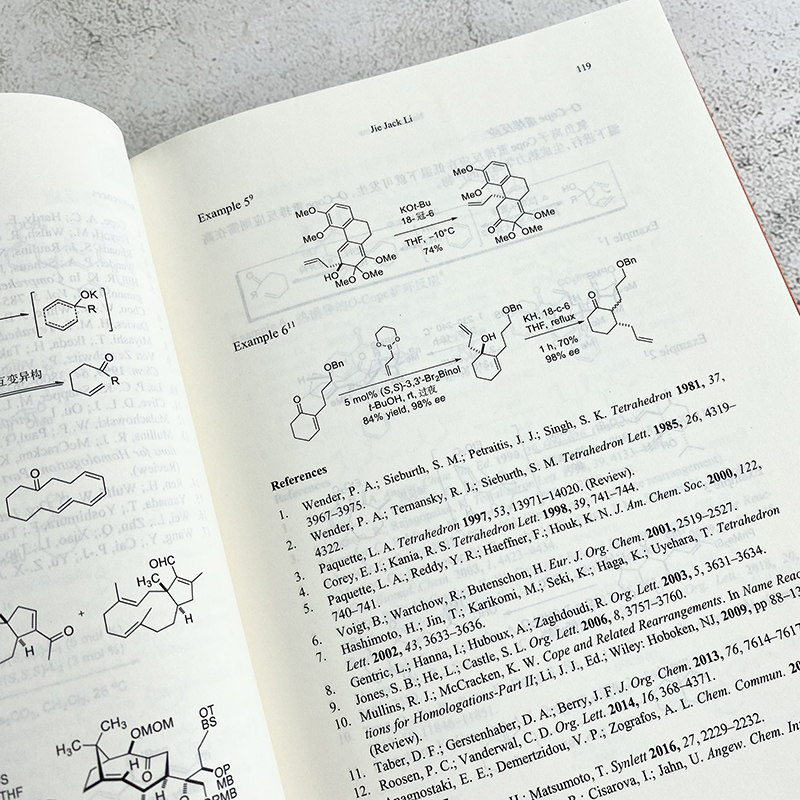 OK
R
互变异构
O
R
O
OHC
H₃C
H
O
+
H
H₃C
CH₃
OMOM
OT
BS
H
O
OP
MB
S
THF
119
Jie Jack Li
Example 5⁹
MeO
MeO
HO
MeO
OMe
OMe
KOt-Bu
18-冠-6
THF, –10°C
74%
MeO
MeO
O
MeO
OMe
OMe
Example 6¹¹
O
OBn
O
B
O
5 mol% (S,S)-3,3'-Br₂Binol
t-BuOH, rt, 过夜
84% yield, 98% ee
OH
OBn
KH, 18-c-6
THF, reflux
1 h, 70%
98% ee
O
OBn
References
1. Wender, P. A.; Sieburth, S. M.; Petraitis, J. J.; Singh, S. K. Tetrahedron 1981, 37,
3967–3975.
2. Wender, P. A.; Ternansky, R. J.; Sieburth, S. M. Tetrahedron Lett. 1985, 26, 4319–
4322.
3. Paquette, L. A. Tetrahedron 1997, 53, 13971–14020. (Review).
4. Corey, E. J.; Kania, R. S. Tetrahedron Lett. 1998, 39, 741–744.
5. Paquette, L. A.; Reddy, Y. R.; Haeffner, F.; Houk, K. N. J. Am. Chem. Soc. 2000, 122,
740–741.
6. Voigt, B.; Wartchow, R.; Butenschon, H. Eur. J. Org. Chem. 2001, 2519–2527.
7. Hashimoto, H.; Jin, T.; Karikomi, M.; Seki, K.; Haga, K.; Uyehara, T. Tetrahedron
Lett. 2002, 43, 3633–3636.
8. Gentric, L.; Hanna, I.; Huboux, A.; Zaghdoudi, R. Org. Lett. 2003, 5, 3631–3634.
9. Jones, S. B.; He, L.; Castle, S. L. Org. Lett. 2006, 8, 3757–3760.
10. Mullins, R. J.; McCracken, K. W. Cope and Related Rearrangements. In Name Reac
tions for Homologations-Part II; Li, J. J., Ed.; Wiley: Hoboken, NJ, 2009, pp 88–1
(Review).
11. Taber, D. F.; Gerstenhaber, D. A.; Berry, J. F. J. Org. Chem. 2013, 76, 7614–7617
12. Roosen, P. C.; Vanderwal, C. D. Org. Lett. 2014, 16, 368–4371.
Anagnostaki, E. E.; Demertzidou, V. P.; Zografos, A. L. Chem. Commun. 20
H.; Matsumoto, T. Synlett 2016, 27, 2229–2232.
P.; Cisarova, I.; Jahn, U. Angew. Chem. In